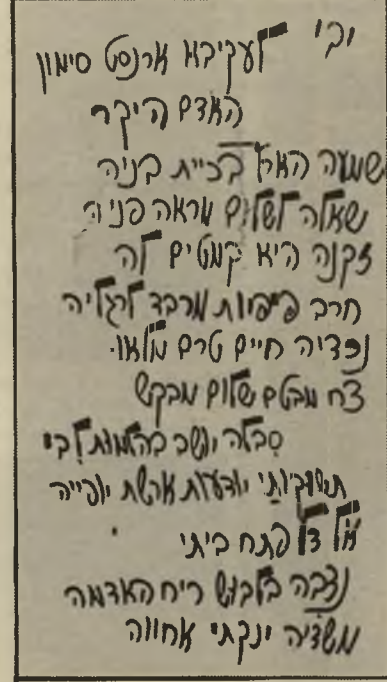 יבי לעקיבא ארנסט סימון
האדם היקר
שמעה הארץ בכיית בניה
שאלה לשלום מראה פניה
זקנה היא קמטים לה
חרב פיפיות מרבד לרגליה
נכדיה חיים טרם מלאו.
צח מבטם שלום מבקש
סבלה יושב בהלמות לבי
יודעות ארשת יופייה
אל צל פתח ביתי
נצבה בלבוש ריח האדמה
משדיה ינקתי אחווה